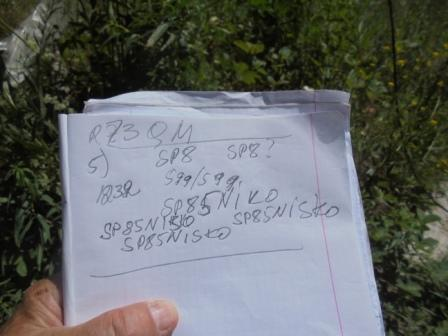 RZ3QM
5) SP8 SP8?
1232 599/599
SP85NISKO
SP85NISKO SP85NISKO
SP85NISKO